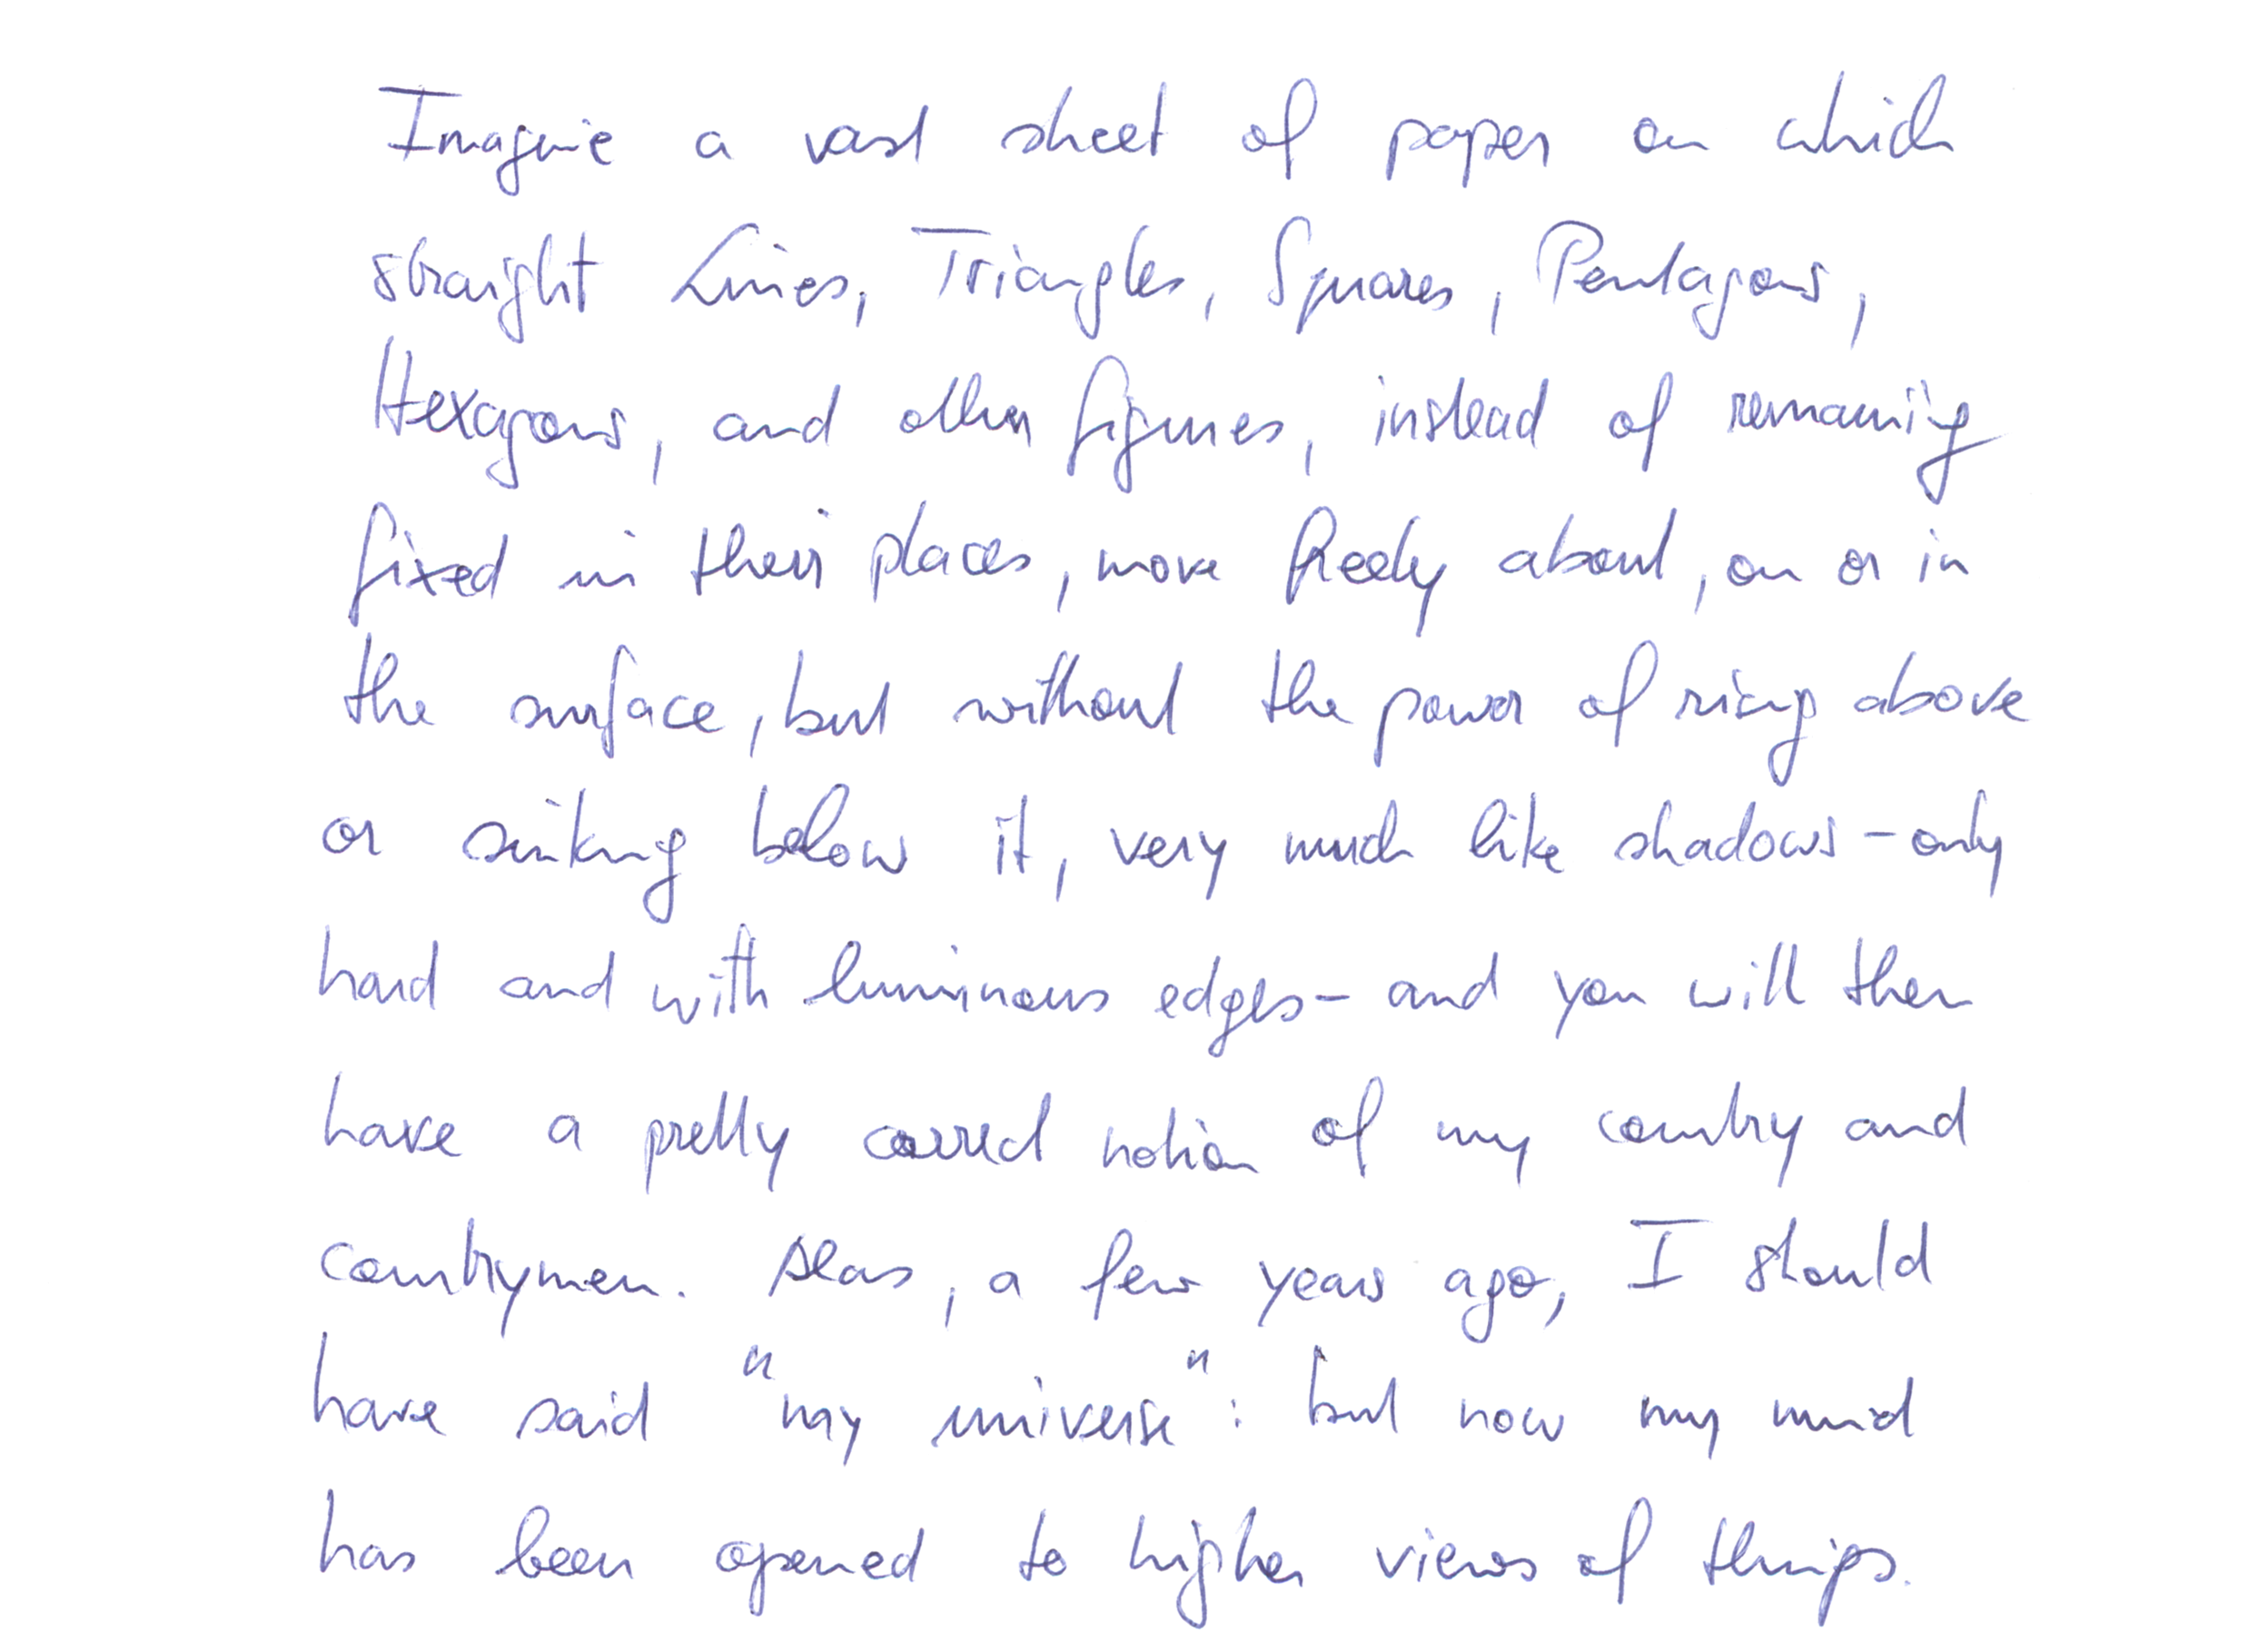 Imagine a vast sheet of paper on which
straight Lines, Triangles, Squares, Pentagons,
Hexagons, and other figures, instead of remaining
fixed in their places, move freely about, on or in
the surface, but without the power of rising above
or sinking below it, very much like shadows - only
hard and with luminous edges - and you will then
have a pretty correct notion of my country and
countrymen. Alas, a few years ago, I should
have said "my universe": but now my mind
has been opened to higher views of things.